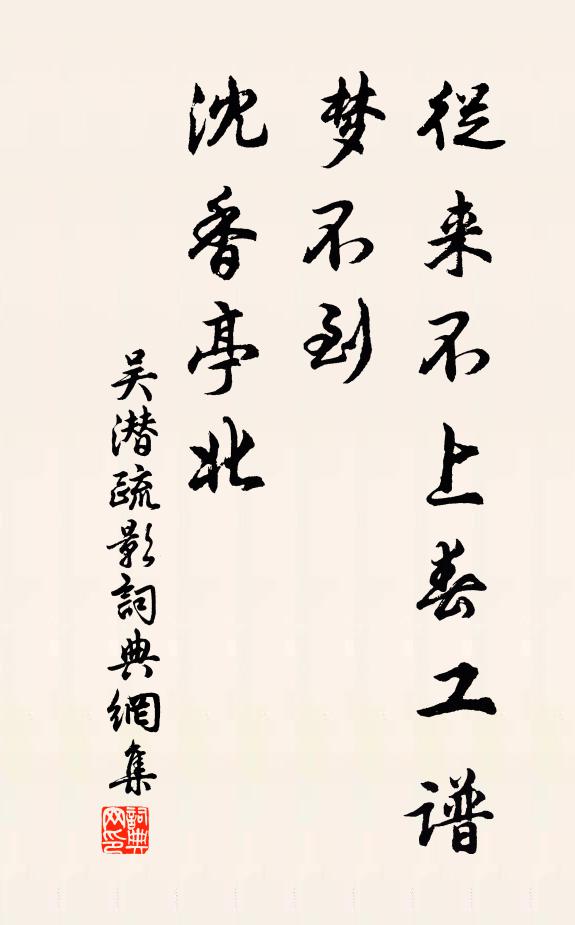 從来不上春工谱
梦不到
沈香亭北
吴潜疏影詞典網集
詞典网印